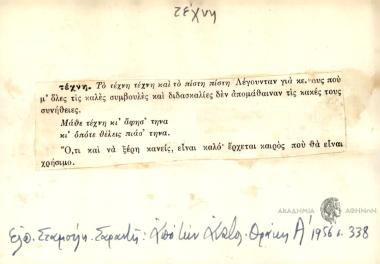 τέχνη
τέχνη. Τὸ τέχνη τέχνη καὶ τὸ πίστη πίστη Λέγουνταν γιὰ κείνους ποὺ
μ' ὅλες τὶς καλὲς συμβουλὲς καὶ διδασκαλίες δὲν ἀπομάθαιναν τὶς κακές τους
συνήθειες.
Μάθε τέχνη κι' ἄφησ' τηνα
κι' ὁπότε θέλεις πιάσ' τηνα.
Ὅ,τι καὶ νὰ ξέρη κανείς, εἶναι καλό· ἔρχεται καιρὸς ποὺ θὰ εἶναι
χρήσιμο.
ΑΚΑΔΗΜΙΑ ΑΘΗΝΩΝ
Ἐλπ. Σταμούλη-Σαραντῆ: Ἀπὸ τὴν Ἀνατ. Θράκη Α' 1956 σ. 338